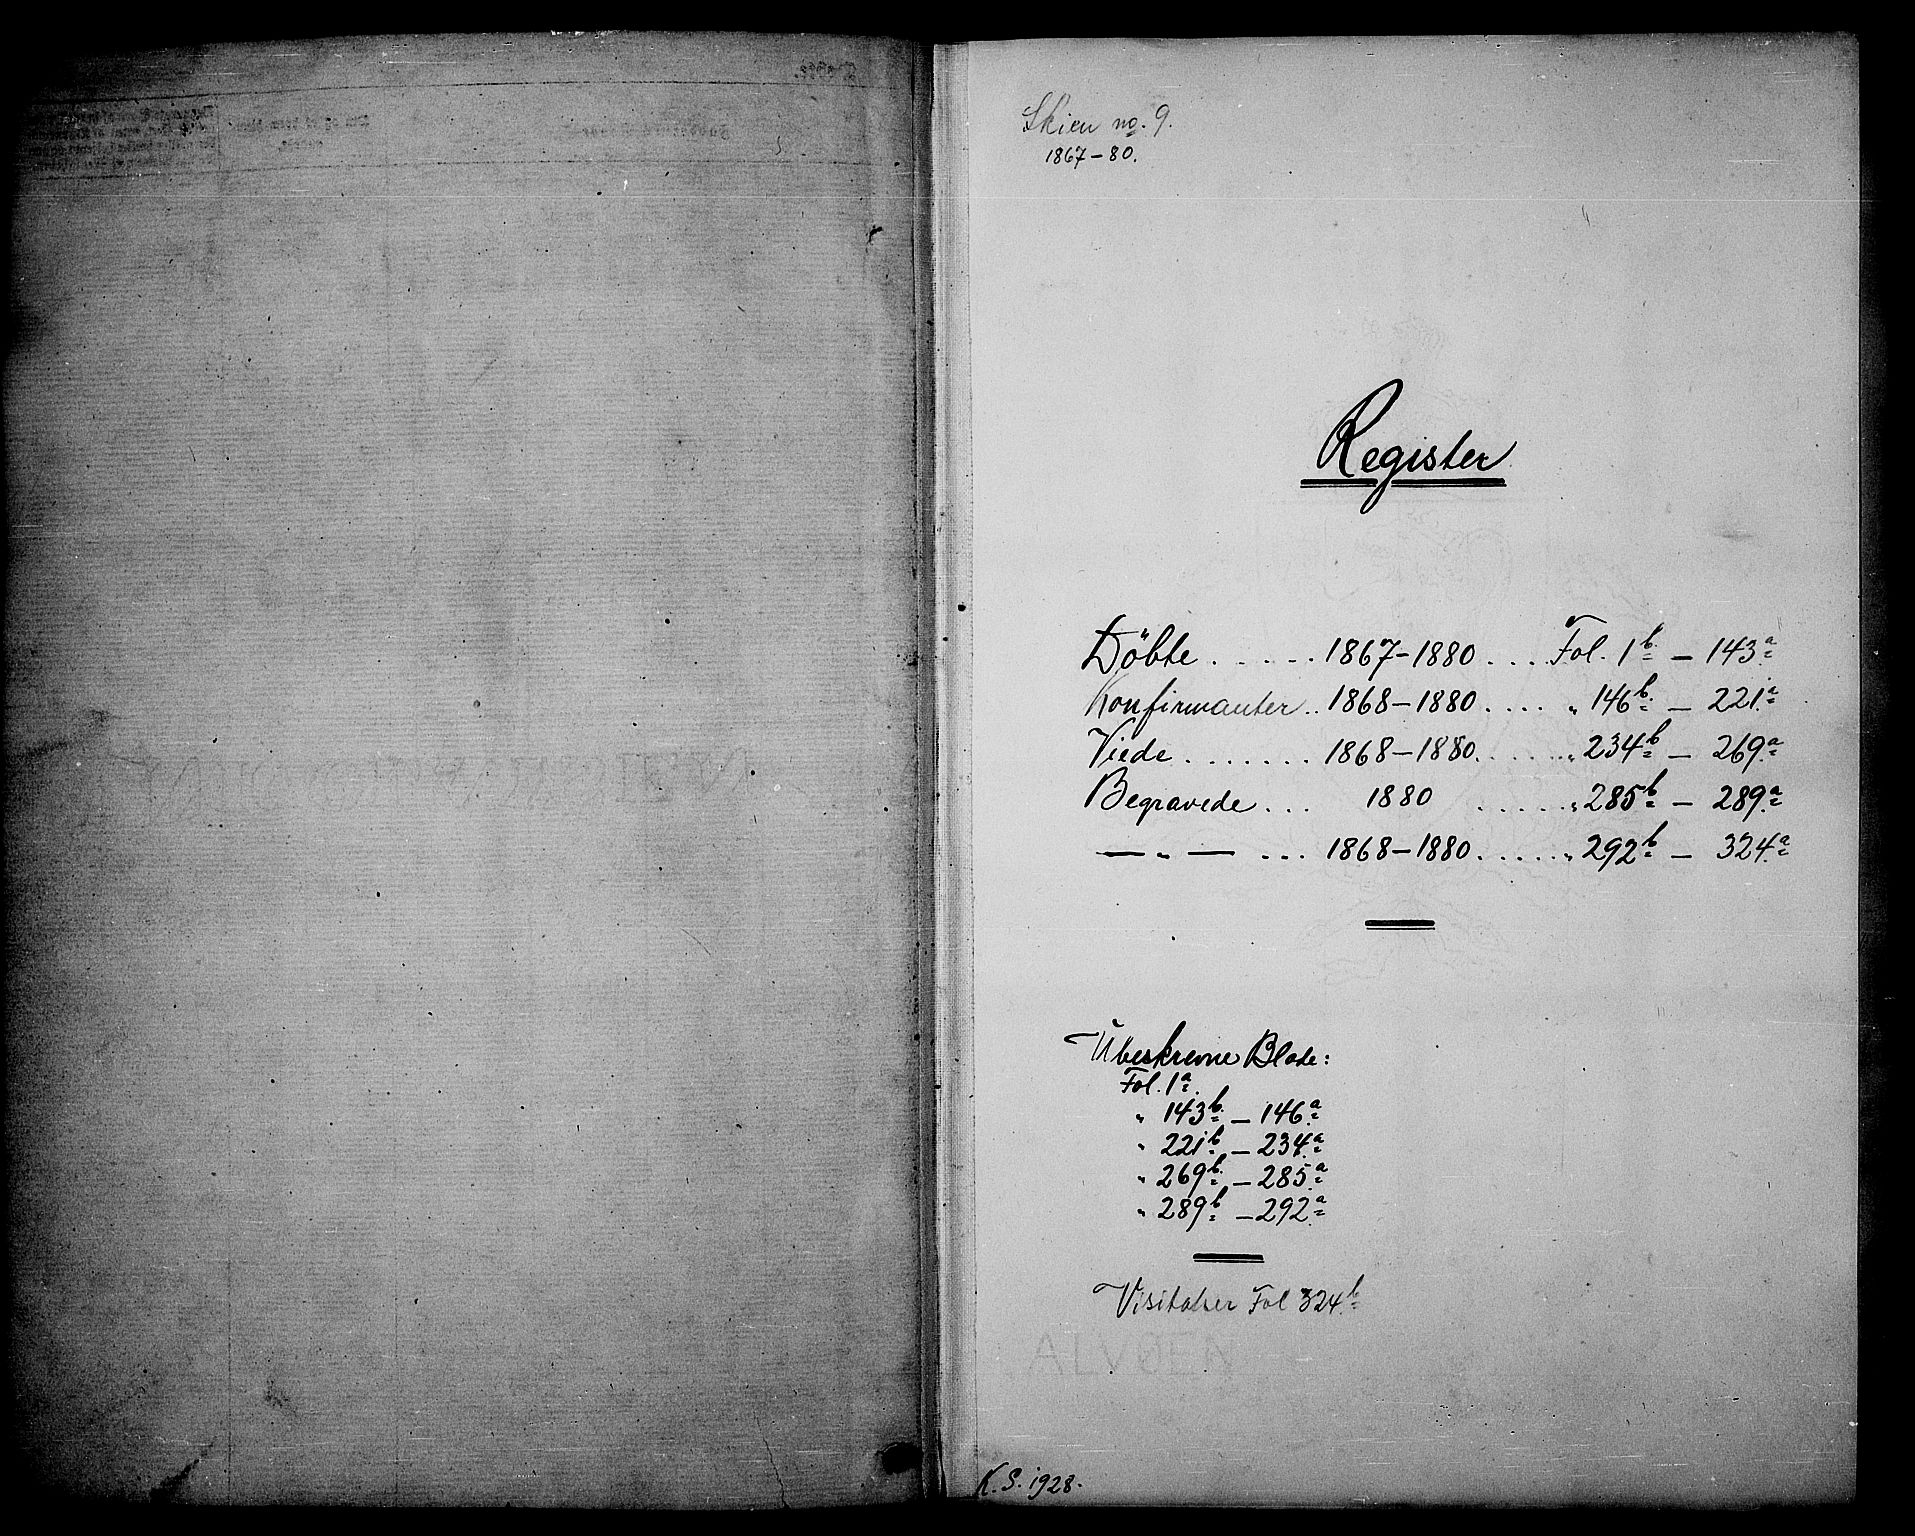 Skien no. 9.
1867–80.
Register
Döbte . . . . . . 1867–1880 . . . . Fol. 1b. – 143a.
Konfirmanter . . 1868–1880 . . . . " 146b. – 221a.
Viede . . . . . . . 1868–1880 . . . . . . " 234b – 269a.
Begravede . . . 1880 . . . . . " 285b. – 289a.
— " — . . . 1868–1880 . . . . . " 292b. – 324a.
Ubeskrevne Blade:
Fol. 1a.
" 143b. – 146a.
" 221b. – 234a.
" 269b. – 285a.
" 289b. – 292a.
Visitatser Fol 324b.
ALVØEN
K. S. 1928.